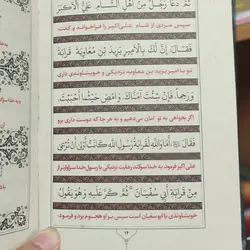 ثُمَّ دَعَا رَجُلٌ مِنْ اَهْلِ الشَّامِ عَلِیَّ الْاَکْبَرِ
سپس مردی از شام علی‌اکبر را فراخواند و گفت
فَقَالَ: اِنَّ لَکَ بِاَمِیرِ یَزِیدَ بْنِ مُعَاوِیَةَ قَرَابَةً
تو با امیر یزید بن معاویه نزدیکی و خویشاوندی داری
وَ رَحِماً فَاِنْ شِئْتَ آمَنَّاکَ وَ امْضِ حَیْثُ اَحْبَبْتَ،
اگر بخواهی به تو امان می‌دهیم و به هر جا که دوست داری برو
فَقَالَ: اَمَا وَاللّٰهِ لَقَرَابَةُ رَسُولِ اللّٰهِ کَانَتْ اَوْلیٰ اَنْ تُرْعیٰ
علی اکبر فرمود: به خدا سوگند رعایت نزدیکی با رسول خدا سزاوارتر از
مِنْ قَرَابَةِ اَبِی سُفْیَانَ، ثُمَّ کَرَّ عَلَیْهِ وَ هُوَ یَقُولُ
خویشاوندی با ابوسفیان است سپس بر او هجوم برد و فرمود: